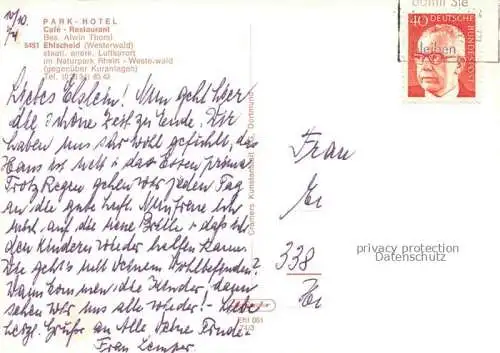 10/10.
74
PARK-HOTEL
Café - Restaurant
Bes. Alwin Thorst
5451 Ehlscheid (Westerwald)
staatl. anerk. Luftkurort
im Naturpark Rhein - Westerwald
(gegenüber Kuranlagen)
Tel. 85 43
Liebes Elslein! Nun geht hier
die schöne Zeit zu Ende. Wir
haben uns sehr wohl gefühlt, das
Haus ist nett u. das Essen prima
Trotz Regen gehen wir jeden Tag
an die gute Luft. Nun freue ich
mich auf die neue Brille u. daß ich
den Kindern wieder helfen kann.
Wie geht's mit Deinem Wohlbefinden?
Wann kommen die Kinder, dann
sehen wir uns alle wieder! - Liebe
herzl. Grüße an Alle Deine
Frau
Cramers Kunstanstalt KG, Dortmund
Ehl 061
74/3
damit Sie
bleiben
40
DEUTSCHE
BUNDESPOST
Frau
338
privacy protection
Datenschutz